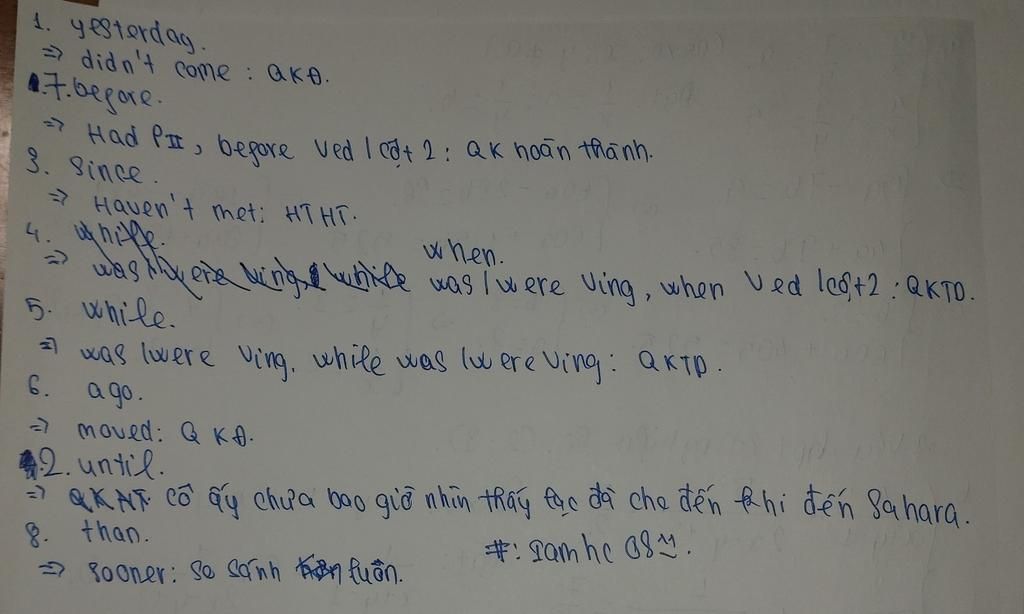 1. yesterday.
=> didn't come : QKĐ.
7. before.
=> Had PII, before Ved / cột 2 : QK hoàn thành.
3. Since.
=> Haven't met: HTHT.
4. while. when.
=> was / were Ving, while was / were Ving, when Ved / cột 2 : QKTD.
5. while.
=> was / were Ving, while was / were Ving: QKTD.
6. ago.
=> moved: QKĐ.
2. until.
=> QKHT. cô ấy chưa bao giờ nhìn thấy lạc đà cho đến khi đến Sahara.
8. than.
=> sooner: so sánh luôn.
#: Iamhc 08